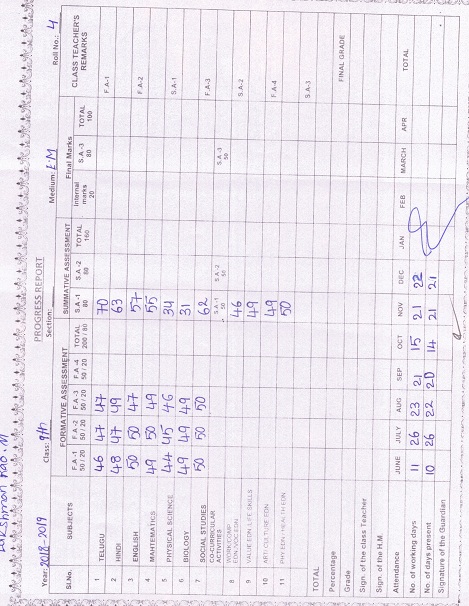 Lakshman Rao. M
PROGRESS REPORT
Year: 2018-2019 Class: 9th Section: Medium: E M Roll No.: 4
Sl.No. SUBJECTS FORMATIVE ASSESSMENT SUMMATIVE ASSESSMENT Final Marks CLASS TEACHER'S REMARKS
F.A -1 50 / 20 F.A -2 50 / 20 F.A -3 50 / 20 F.A -4 50 / 20 TOTAL 200 / 80 S.A -1 80 S.A -2 80 TOTAL 160 Internal marks 20 S.A -3 80 TOTAL 100
1 TELUGU 46 47 47 70 F.A-1
2 HINDI 48 47 49 63
3 ENGLISH 50 50 47 57 F.A-2
4 MAHTEMATICS 49 50 49 55
5 PHYSICAL SCIENCE 44 45 46 34 S.A-1
6 BIOLOGY 49 49 49 31
7 SOCIAL STUDIES 50 50 50 62 F.A-3
CO-CURRICULAR ACTIVITIES S.A -1 50 S.A -2 50 S.A -3 50
8 WORK/COMP. EDN./VOC.EDN 46 S.A-2
9 VALUE EDN. LIFE SKILLS 49
10 ART/CULTURE EDN 49 F.A-4
11 PHY. EDN. / HEALTH EDN 50
TOTAL S.A-3
Percentage
Grade FINAL GRADE
Sign. of the class Teacher
Sign. of the H.M.
Attendance JUNE JULY AUG SEP OCT NOV DEC JAN FEB MARCH APR TOTAL
No. of working days 11 26 23 21 15 21 22
No. of days present 10 26 22 20 14 21 21
Signature of the Guardian